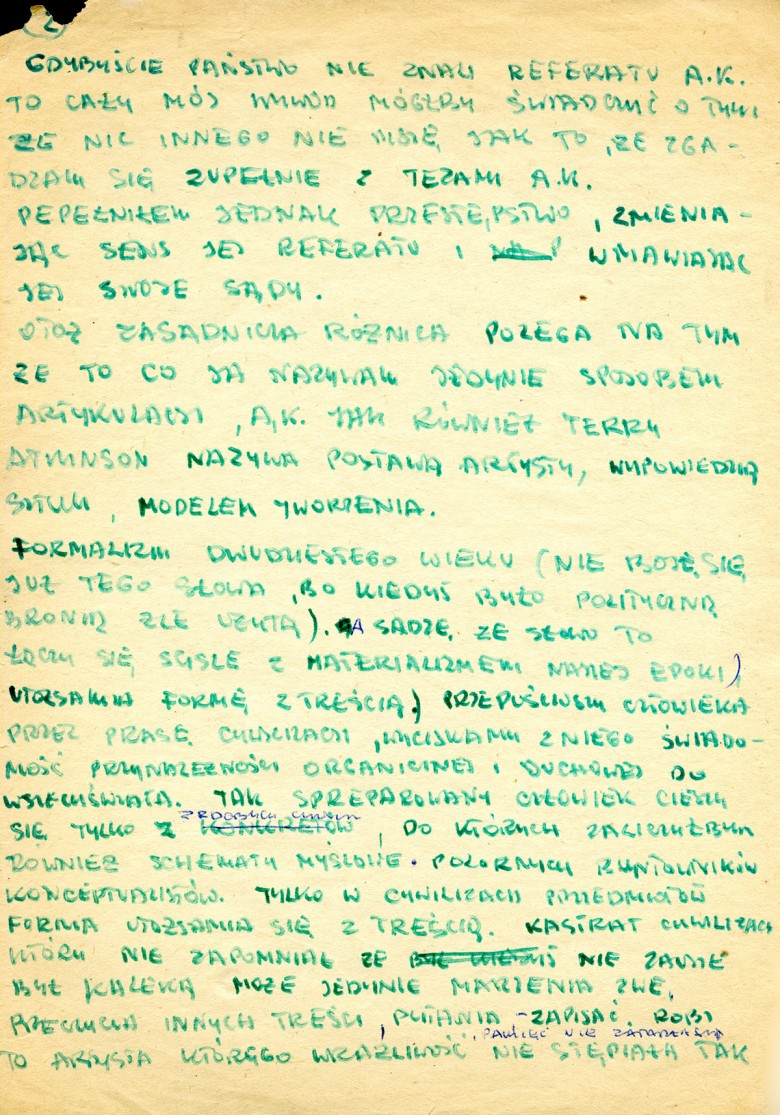 2
GDYBYŚCIE PAŃSTWO NIE ZNALI REFERATU A.K.
TO CAŁY MÓJ WYWÓD MÓGŁBY ŚWIADCZYĆ O TYM
ŻE NIC INNEGO NIE MÓJĘ JAK TO, ŻE ZGA-
DZAM SIĘ ZUPEŁNIE Z TEZAMI A.K.
PEPEŁNIŁEM JEDNAK PRZESTĘPSTWO, ZMIENIA-
JĄC SENS JEJ REFERATU I WMAWIAJĄC
JEJ SWOJE SĄDY.
OTÓŻ ZASADNICZA RÓŻNICA POLEGA NA TYM
ŻE TO CO JA NAZYWAM JEDYNIE SPOSOBEM
ARTYKULACJI, A.K. JAK RÓWNIEŻ TERRY
ATKINSON NAZYWA POSTAWĄ ARTYSTY, WYPOWIEDZIĄ
SZTUKI, MODELEM TWORZENIA.
FORMALIZM DWUDZIESTEGO WIEKU (NIE BOJĘ SIĘ
JUŻ TEGO SŁOWA, BO KIEDYŚ BYŁO POLITYCZNĄ
BRONIĄ ŹLE UŻYTĄ). A SĄDZĘ, ŻE SŁOWO TO
ŁĄCZY SIĘ ŚCIŚLE Z MATERIALIZMEM NASZEJ EPOKI)
UTOŻSAMIA FORMĘ Z TREŚCIĄ.) PRZEPUŚCIWSZY CZŁOWIEKA
PRZEZ PRASĘ CYWILIZACJI, WYCISKAMY Z NIEGO ŚWIADO-
MOŚĆ PRZYNALEŻNOŚCI ORGANICZNEJ I DUCHOWEJ DO
WSZECHŚWIATA. TAK SPREPAROWANY CZŁOWIEK CIESZY
SIĘ TYLKO Z KONKRETÓW, DO KTÓRYCH ZALICZYŁBYM
RÓWNIEŻ SCHEMATY MYŚLOWE. POZORNYCH BUNTOWNIKÓW
KONCEPTUALISTÓW. TYLKO W CYWILIZACJI PRZEDMIOTÓW
FORMA UTOŻSAMIA SIĘ Z TREŚCIĄ. KASTRAT CYWILIZACJI
KTÓRY NIE ZAPOMNIAŁ ŻE NIE ZAWSZE
BYŁ KALEKĄ MOŻE JEDYNIE MARZENIA SWE,
PRZECZUCIA INNYCH TREŚCI, PYTANIA - ZAPISAĆ. ROBI
TO ARTYSTA KTÓREGO WRAŻLIWOŚĆ, PAMIĘĆ NIE STĘPIAŁA TAK